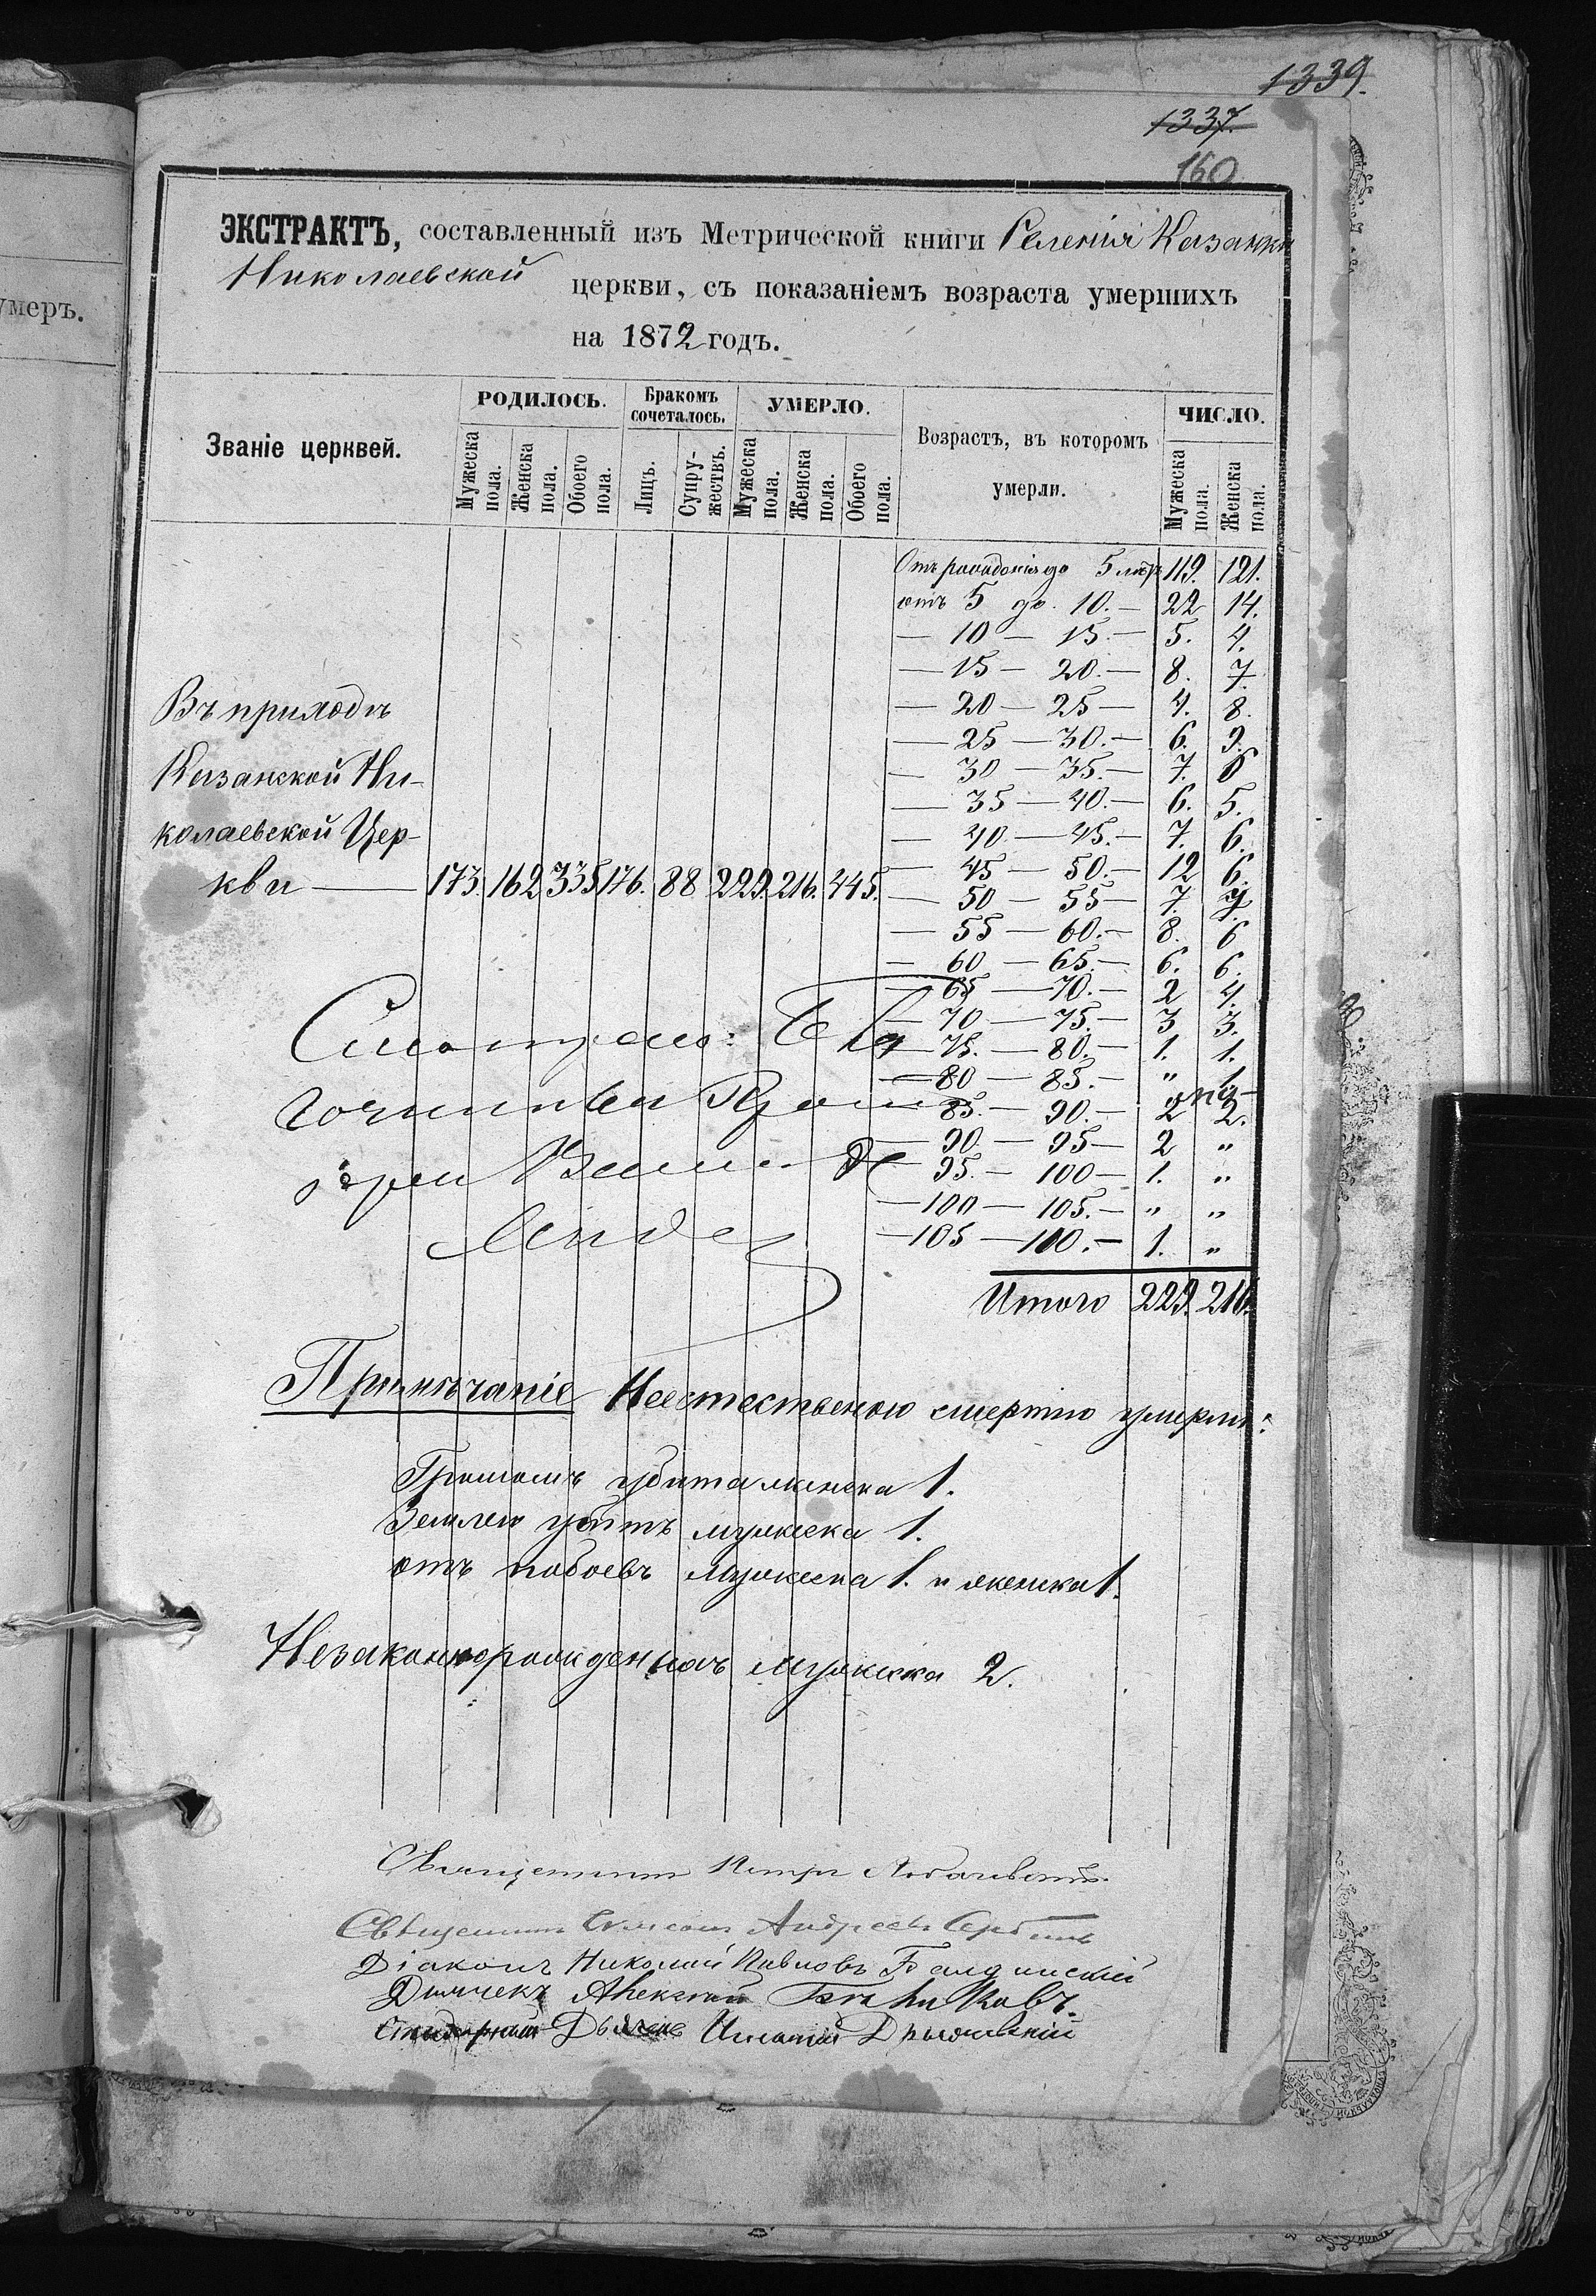 1339.
1337.
160
умеръ.
ЭКСТРАКТЪ, составленный изъ Метрической книги Селенія Казанки
Николаевской церкви, съ показаніемъ возраста умершихъ
на 1872 годъ.
Званіе церквей.
РОДИЛОСЬ.
Бракомъ сочеталось.
УМЕРЛО.
Возрастъ, въ которомъ умерли.
ЧИСЛО.
Мужеска пола.
Женска пола.
Обоего пола.
Лицъ.
Супружествъ.
Мужеска пола.
Женска пола.
Обоего пола.
Мужеска пола.
Женска пола.
Въ приходѣ
Казанской Ни-
колаевской Цер-
кви — 173. 162 335 176. 88 229. 216. 445.
Отъ рожденія до 5 лѣтъ 119. 121.
отъ 5 до 10. — 22 14.
— 10 — 15. — 5. 4.
— 15 — 20. — 8. 7.
— 20 — 25 — 4. 8.
— 25 — 30. — 6. 9.
— 30 — 35. — 7. 6
— 35 — 40. — 6. 5.
— 40 — 45. — 7. 6.
— 45 — 50. — 12 6.
— 50 — 55 — 7.
— 55 — 60. — 8. 6
— 60 — 65. — 6. 6.
— 65 — 70. — 2 4.
— 70 — 75. — 3 3.
— 75. — 80. — 1. 1.
— 80 — 85. — "
— 85. — 90. — 2 2.
— 90. — 95 — 2 "
— 95. — 100 — 1. "
— 100 — 105. — " "
— 105 — 100. — 1. "
Итого 229. 216.
Смотрелъ: Бла
гочинный
іерей
Примѣчаніе Неестественою смертію умерли:
Громомъ убита женска 1.
Землею убитъ мужеска 1.
отъ побоевъ мужеска 1. и женска 1.
Незаконнорожденныхъ мужеска 2.
Священникъ Петръ
Священникъ Андреевъ
Діаконъ Николай Павловъ
Дьячекъ Алексей
Дьячекъ